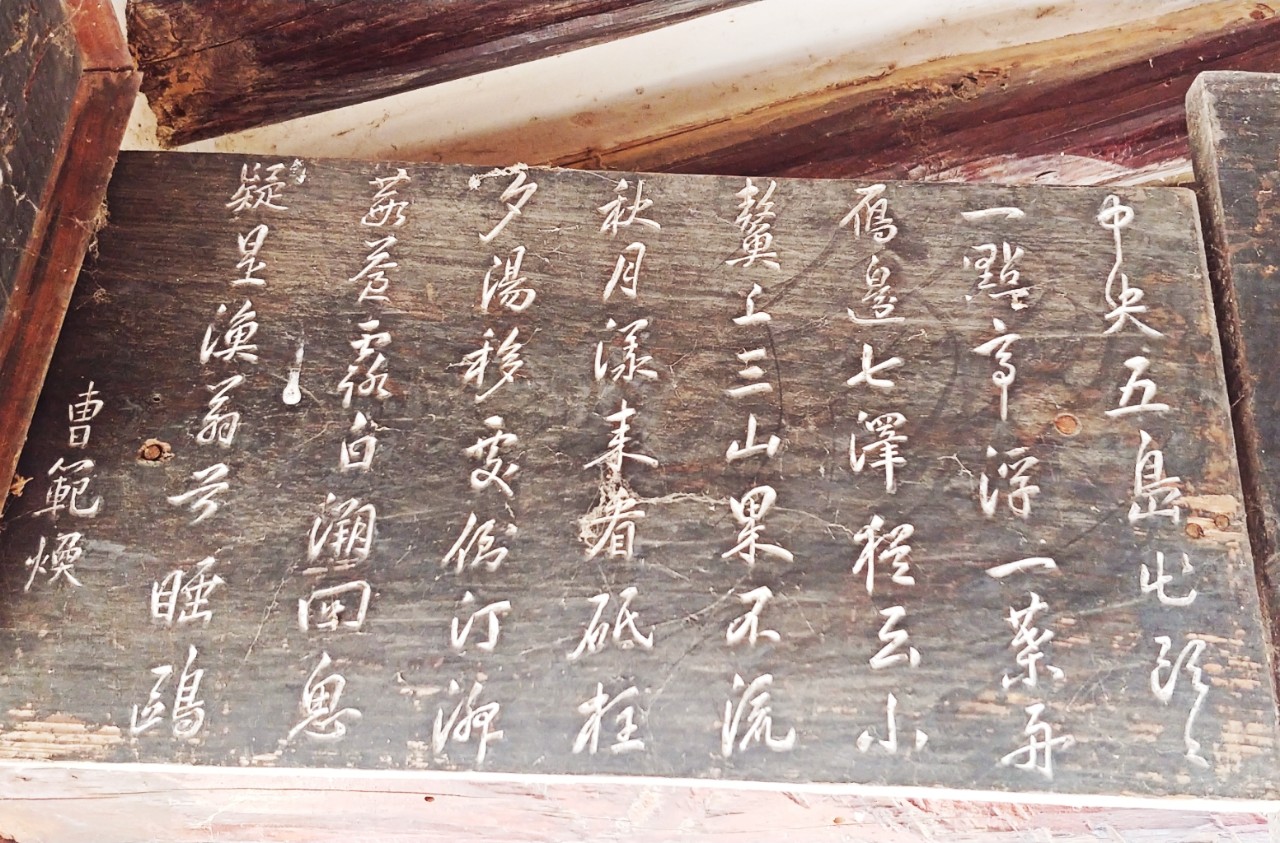 中央五島頭〻
一點亭浮一葉舟
鴈邊七澤猶云小
鰲上三山果不流
秋月漾來看砥柱
夕陽移處汀洲
葭蒼露白溯回恖
疑是漁翁睡鷗
曹範煥